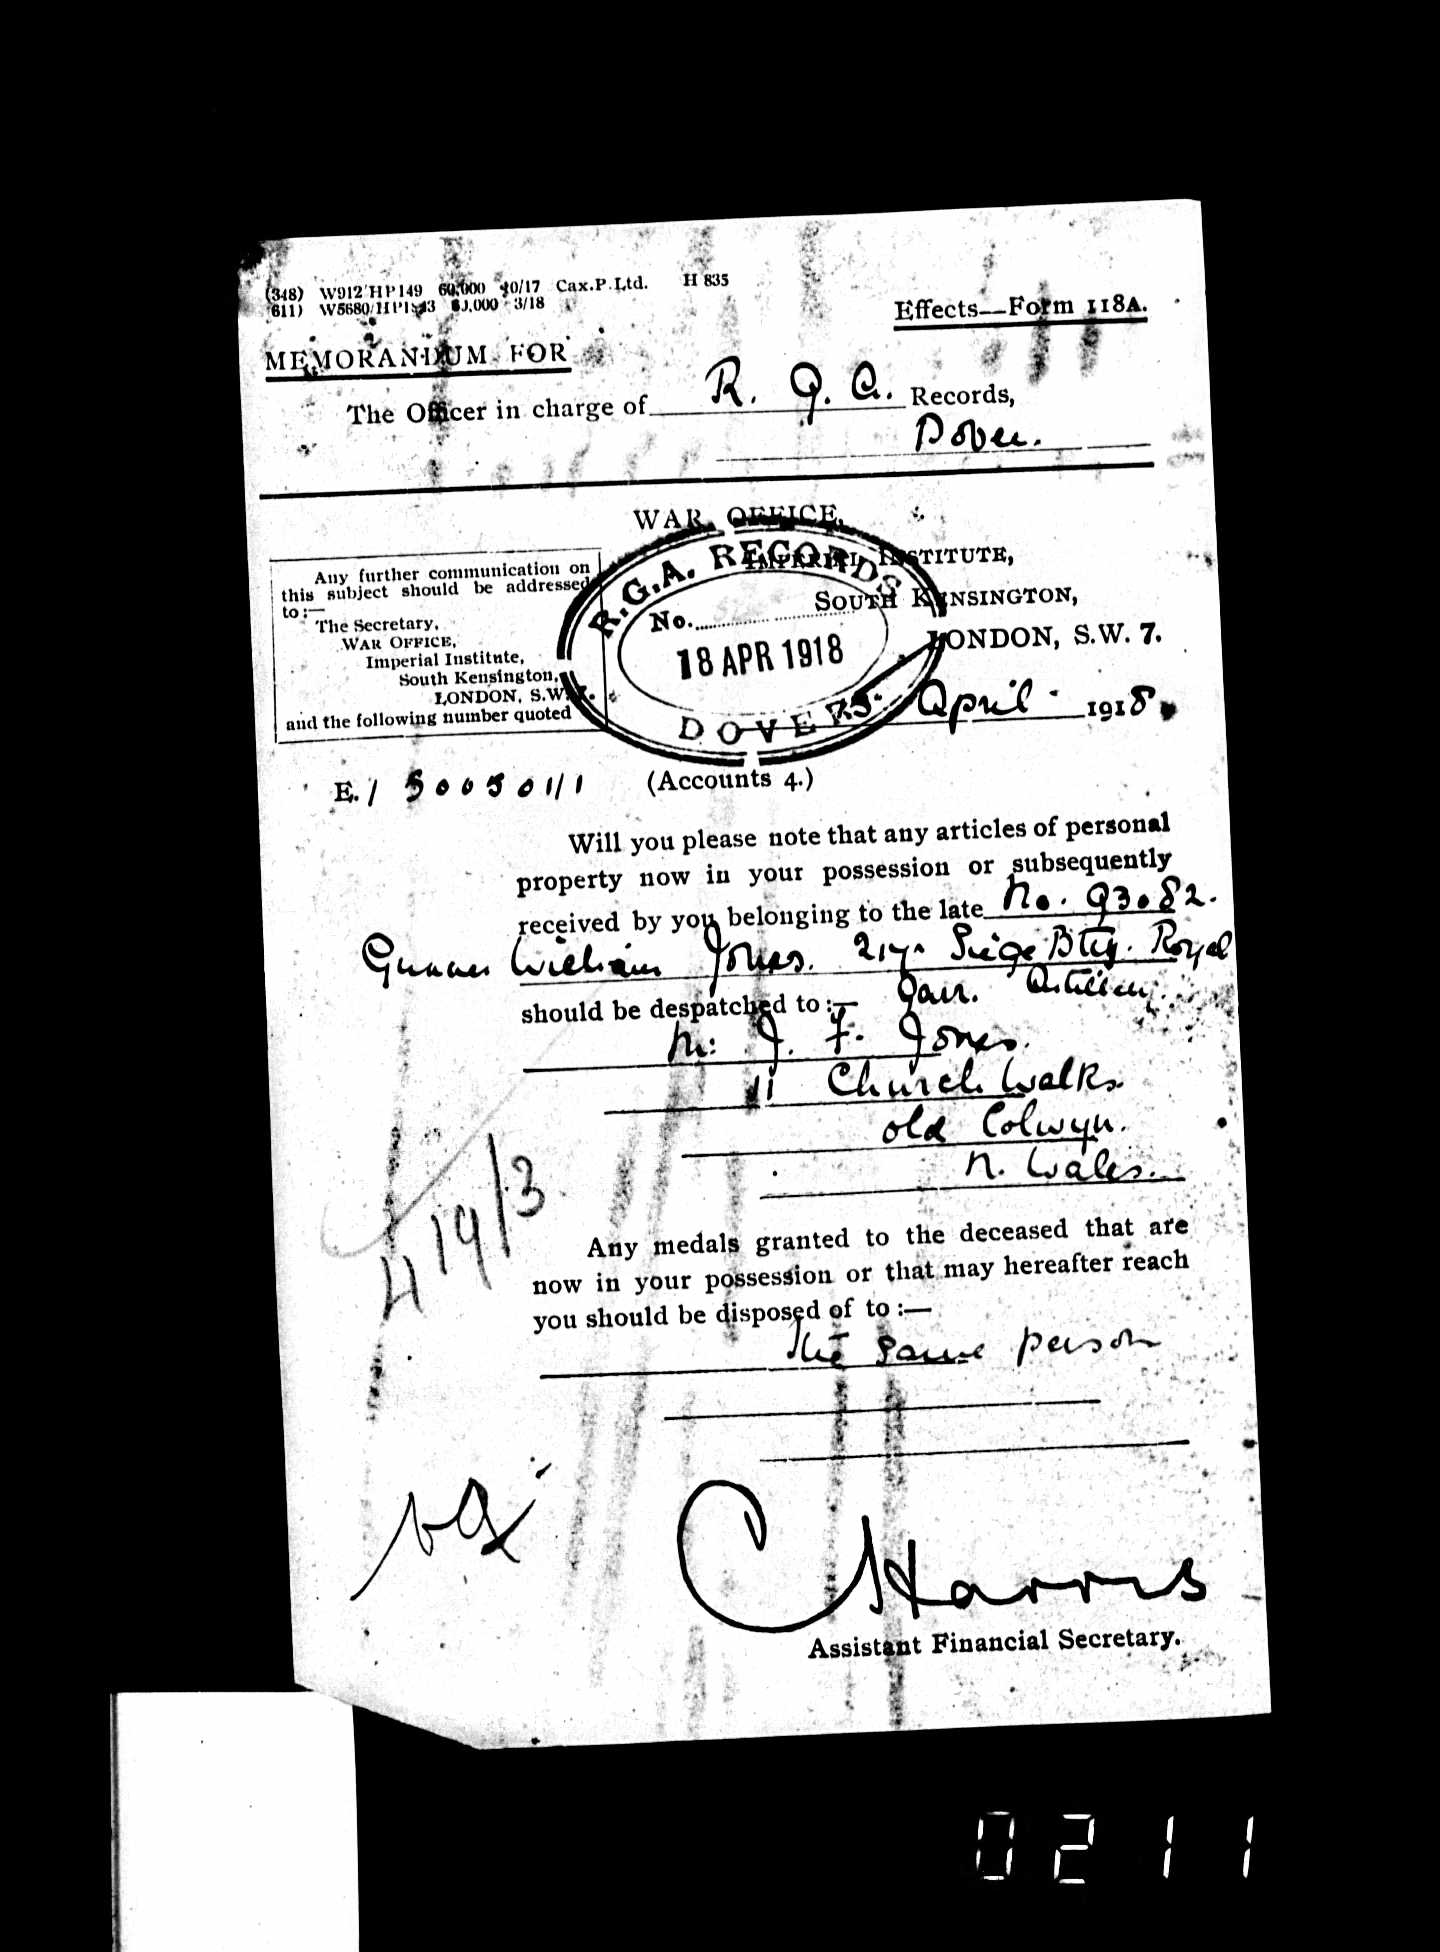 (348) W912/HP149 60,000 10/17 Cax.P.Ltd. H 835
(611) 3/18
Effects—Form 118A.
MEMORANDUM FOR
The Officer in charge of R. G. A. Records,
Dover.
WAR OFFICE,
IMPERIAL INSTITUTE,
SOUTH KENSINGTON,
LONDON, S.W. 7.
April 1918
Any further communication on
this subject should be addressed
to:—
The Secretary,
WAR OFFICE,
Imperial Institute,
South Kensington,
LONDON, S.W. 7.
and the following number quoted
R.G.A. RECORDS
No.
18 APR 1918
DOVER
E./ 500501/1 (Accounts 4.)
Will you please note that any articles of personal
property now in your possession or subsequently
received by you belonging to the late No. 93082.
Gunner William Jones. 217. Siege Bty. Royal
Garr. Artillery.
should be despatched to:—
Mr. J. F. Jones.
11 Church Walks.
Old Colwyn.
N. Wales.
4/19/3
Any medals granted to the deceased that are
now in your possession or that may hereafter reach
you should be disposed of to:—
The same person
C Harris
Assistant Financial Secretary.
0211